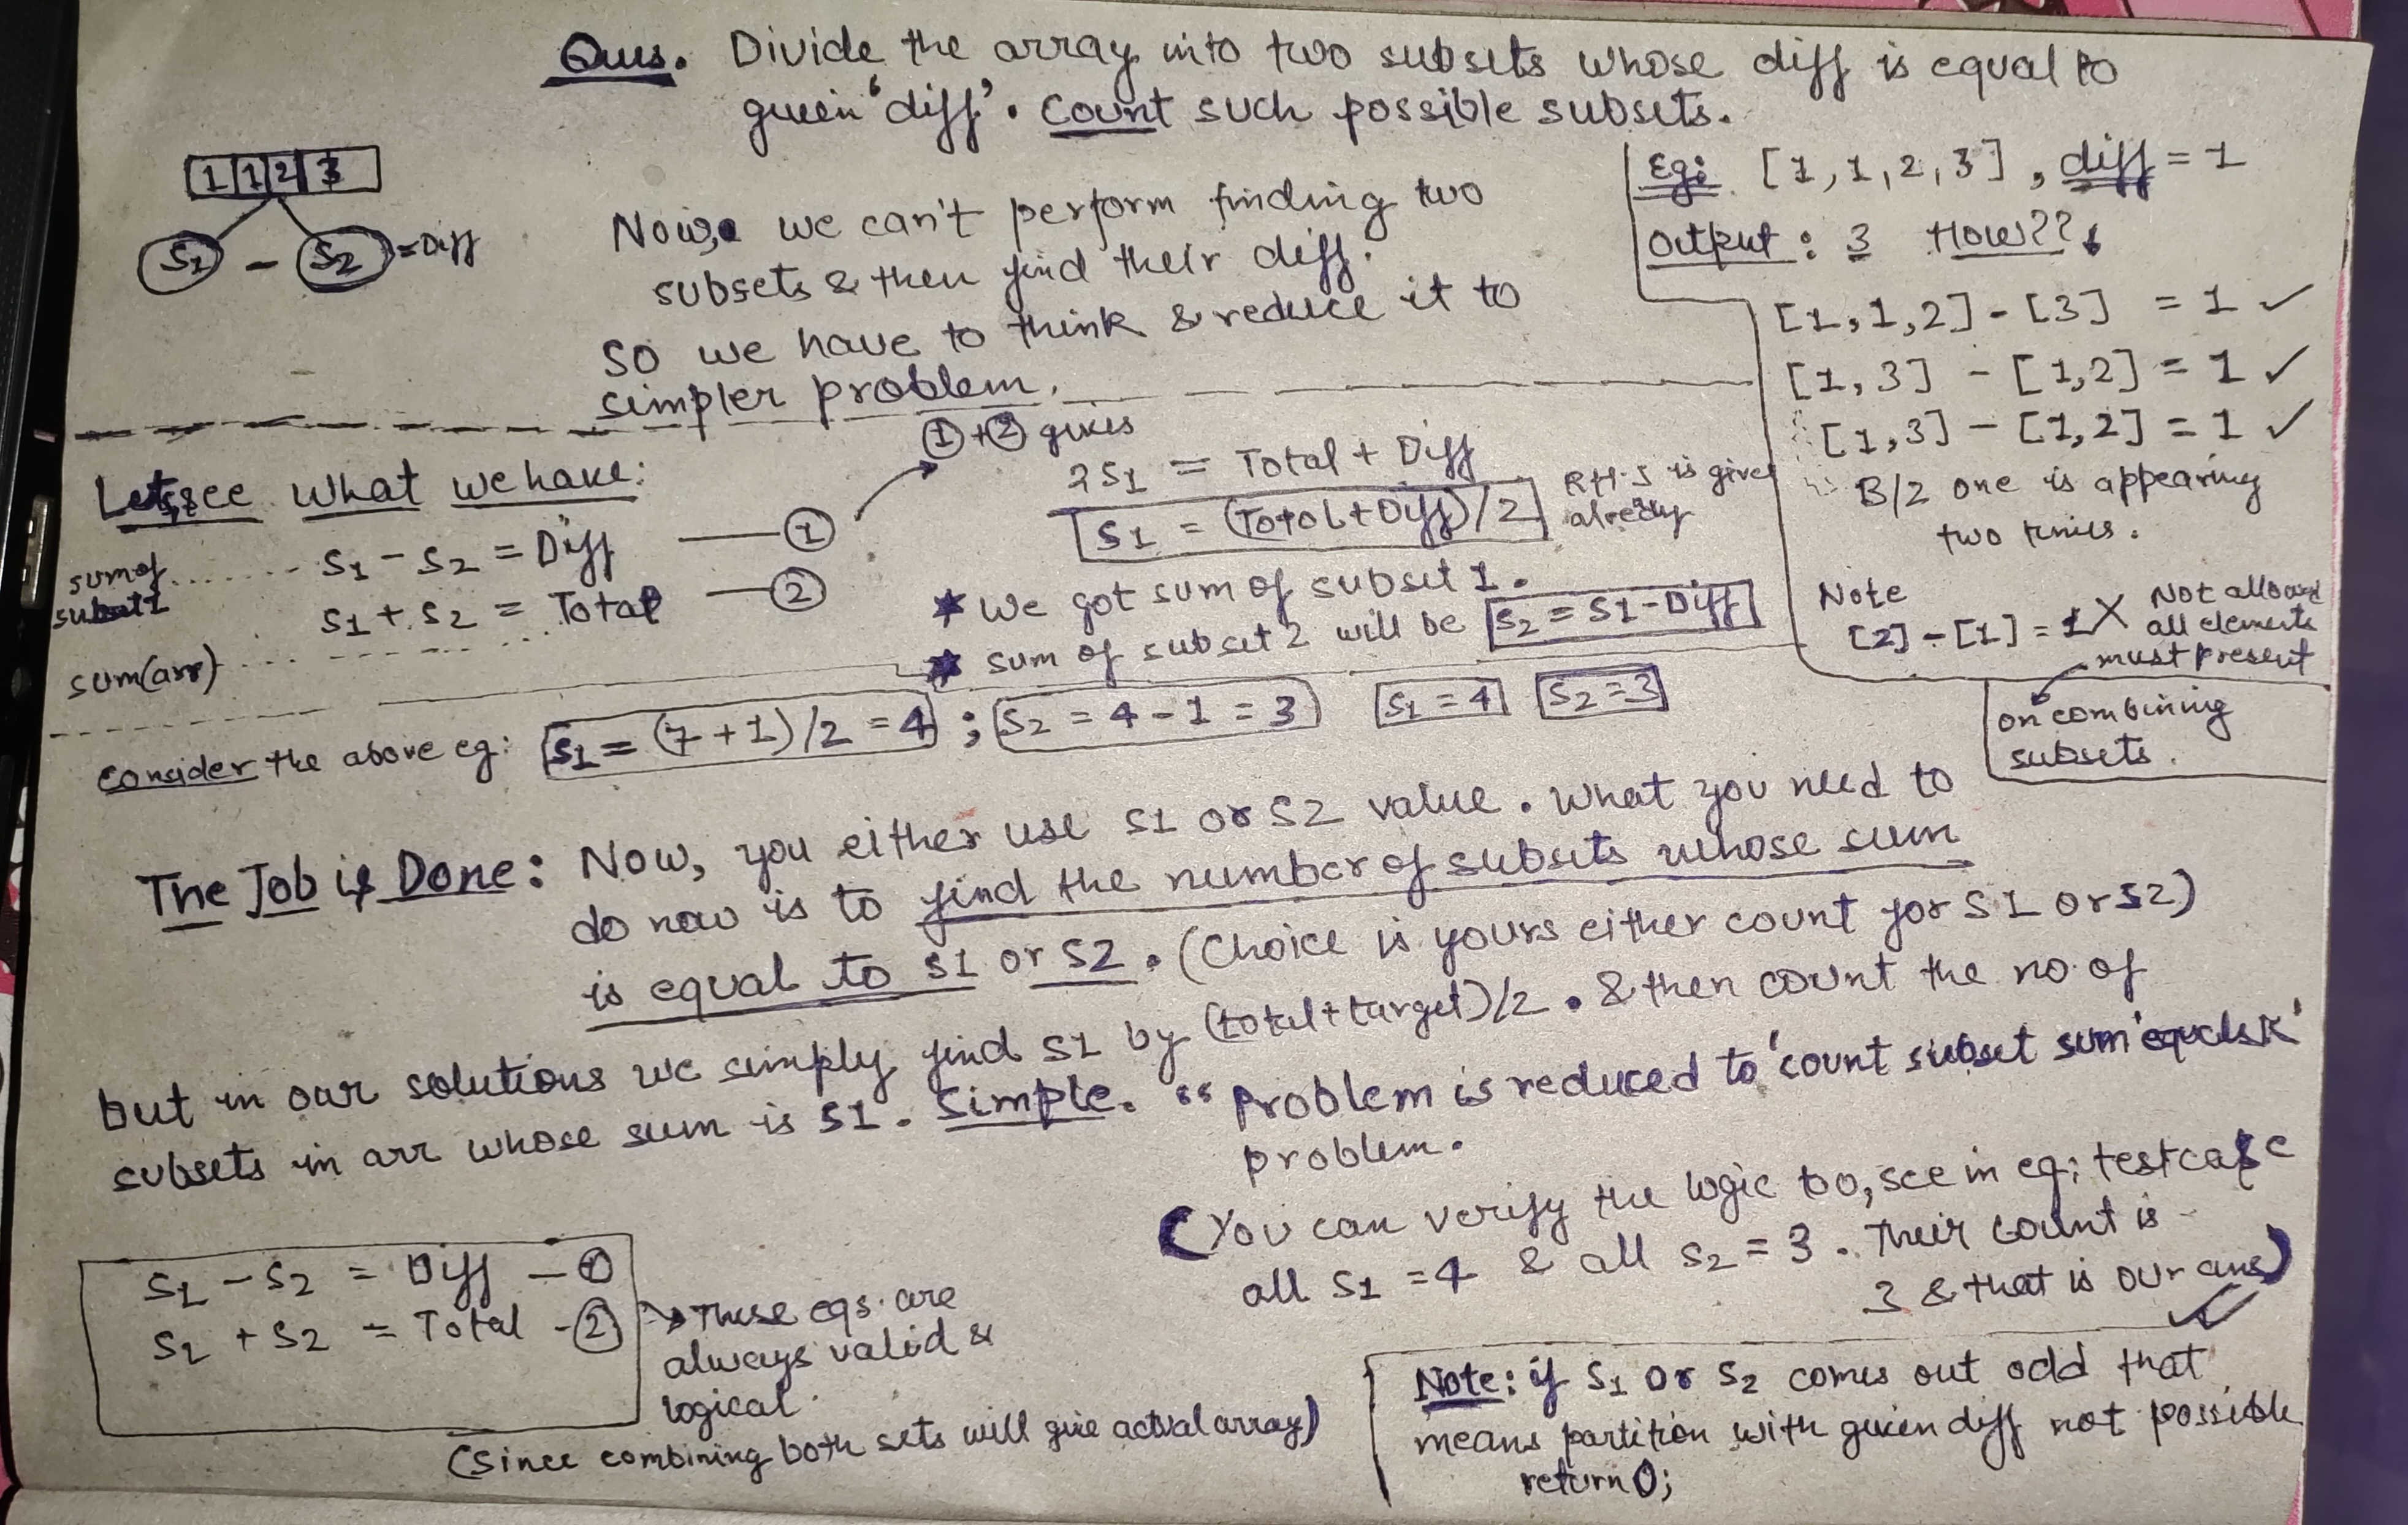 Ques. Divide the array into two subsets whose diff is equal to
given 'diff'. Count such possible subsets.
1 1 2 3
S1 - S2 = Diff
Now, we can't perform finding two
subsets & then find their diff.
So we have to think & reduce it to
simpler problem.
Eg: [1,1,2,3], diff = 1
Output: 3 How??
[1,1,2] - [3] = 1 ✓
[1,3] - [1,2] = 1 ✓
[1,3] - [1,2] = 1 ✓
B/z one is appearing
two times.
Note
[2] - [1] = 1 X Not allowed
all elements
must present
on combining
subsets.
Let's see what we have:
sum of
subset 1
S1 - S2 = Diff — ①
S1 + S2 = Total — ②
sum(arr)
① + ② gives
2S1 = Total + Diff
S1 = (Total + Diff)/2
R.H.S is given
already
★ We got sum of subset 1.
★ sum of subset 2 will be S2 = S1 - Diff
Consider the above eg: S1 = (7+1)/2 = 4 ; S2 = 4 - 1 = 3 S1 = 4 S2 = 3
The Job is Done: Now, you either use S1 or S2 value. What you need to
do now is to find the number of subsets whose sum
is equal to S1 or S2. (Choice is yours either count for S1 or S2)
but in our solutions we simply find S1 by (total+target)/2. & then count the no. of
subsets in arr whose sum is S1. Simple. "Problem is reduced to 'count subset sum equals K'
problem.
(You can verify the logic too, see in eg: testcase
all S1 = 4 & all S2 = 3. Their count is
3 & that is our ans)
S1 - S2 = Diff - ①
S1 + S2 = Total - ②
→ These eqs. are
always valid &
logical.
(Since combining both sets will give actual array)
Note: if S1 or S2 comes out odd that
means partition with given diff not possible
return 0;